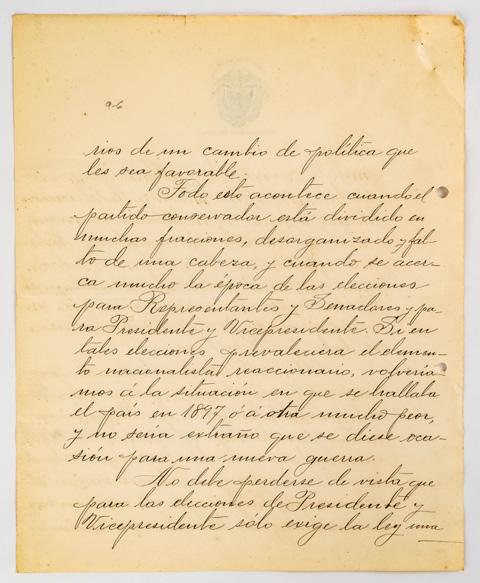 9-6
rios de un cambio de política que
les sea favorable.
Todo esto acontece cuando el
partido conservador está dividido en
muchas fracciones, desorganizado y fal-
to de una cabeza, y cuando se acer-
ca mucho la época de las elecciones
para Representantes y Senadores y pa-
ra Presidente y Vicepresidente. Si en
tales elecciones prevaleciera el elemen-
to nacionalista reaccionario, volveria-
mos á la situación en que se hallaba
el país en 1897 ó á otra mucho peor,
y no sería extraño que se diese oca-
sión para una nueva guerra.
No debe perderse de vista que
para las elecciones de Presidente y
Vicepresidente sólo exige la ley una